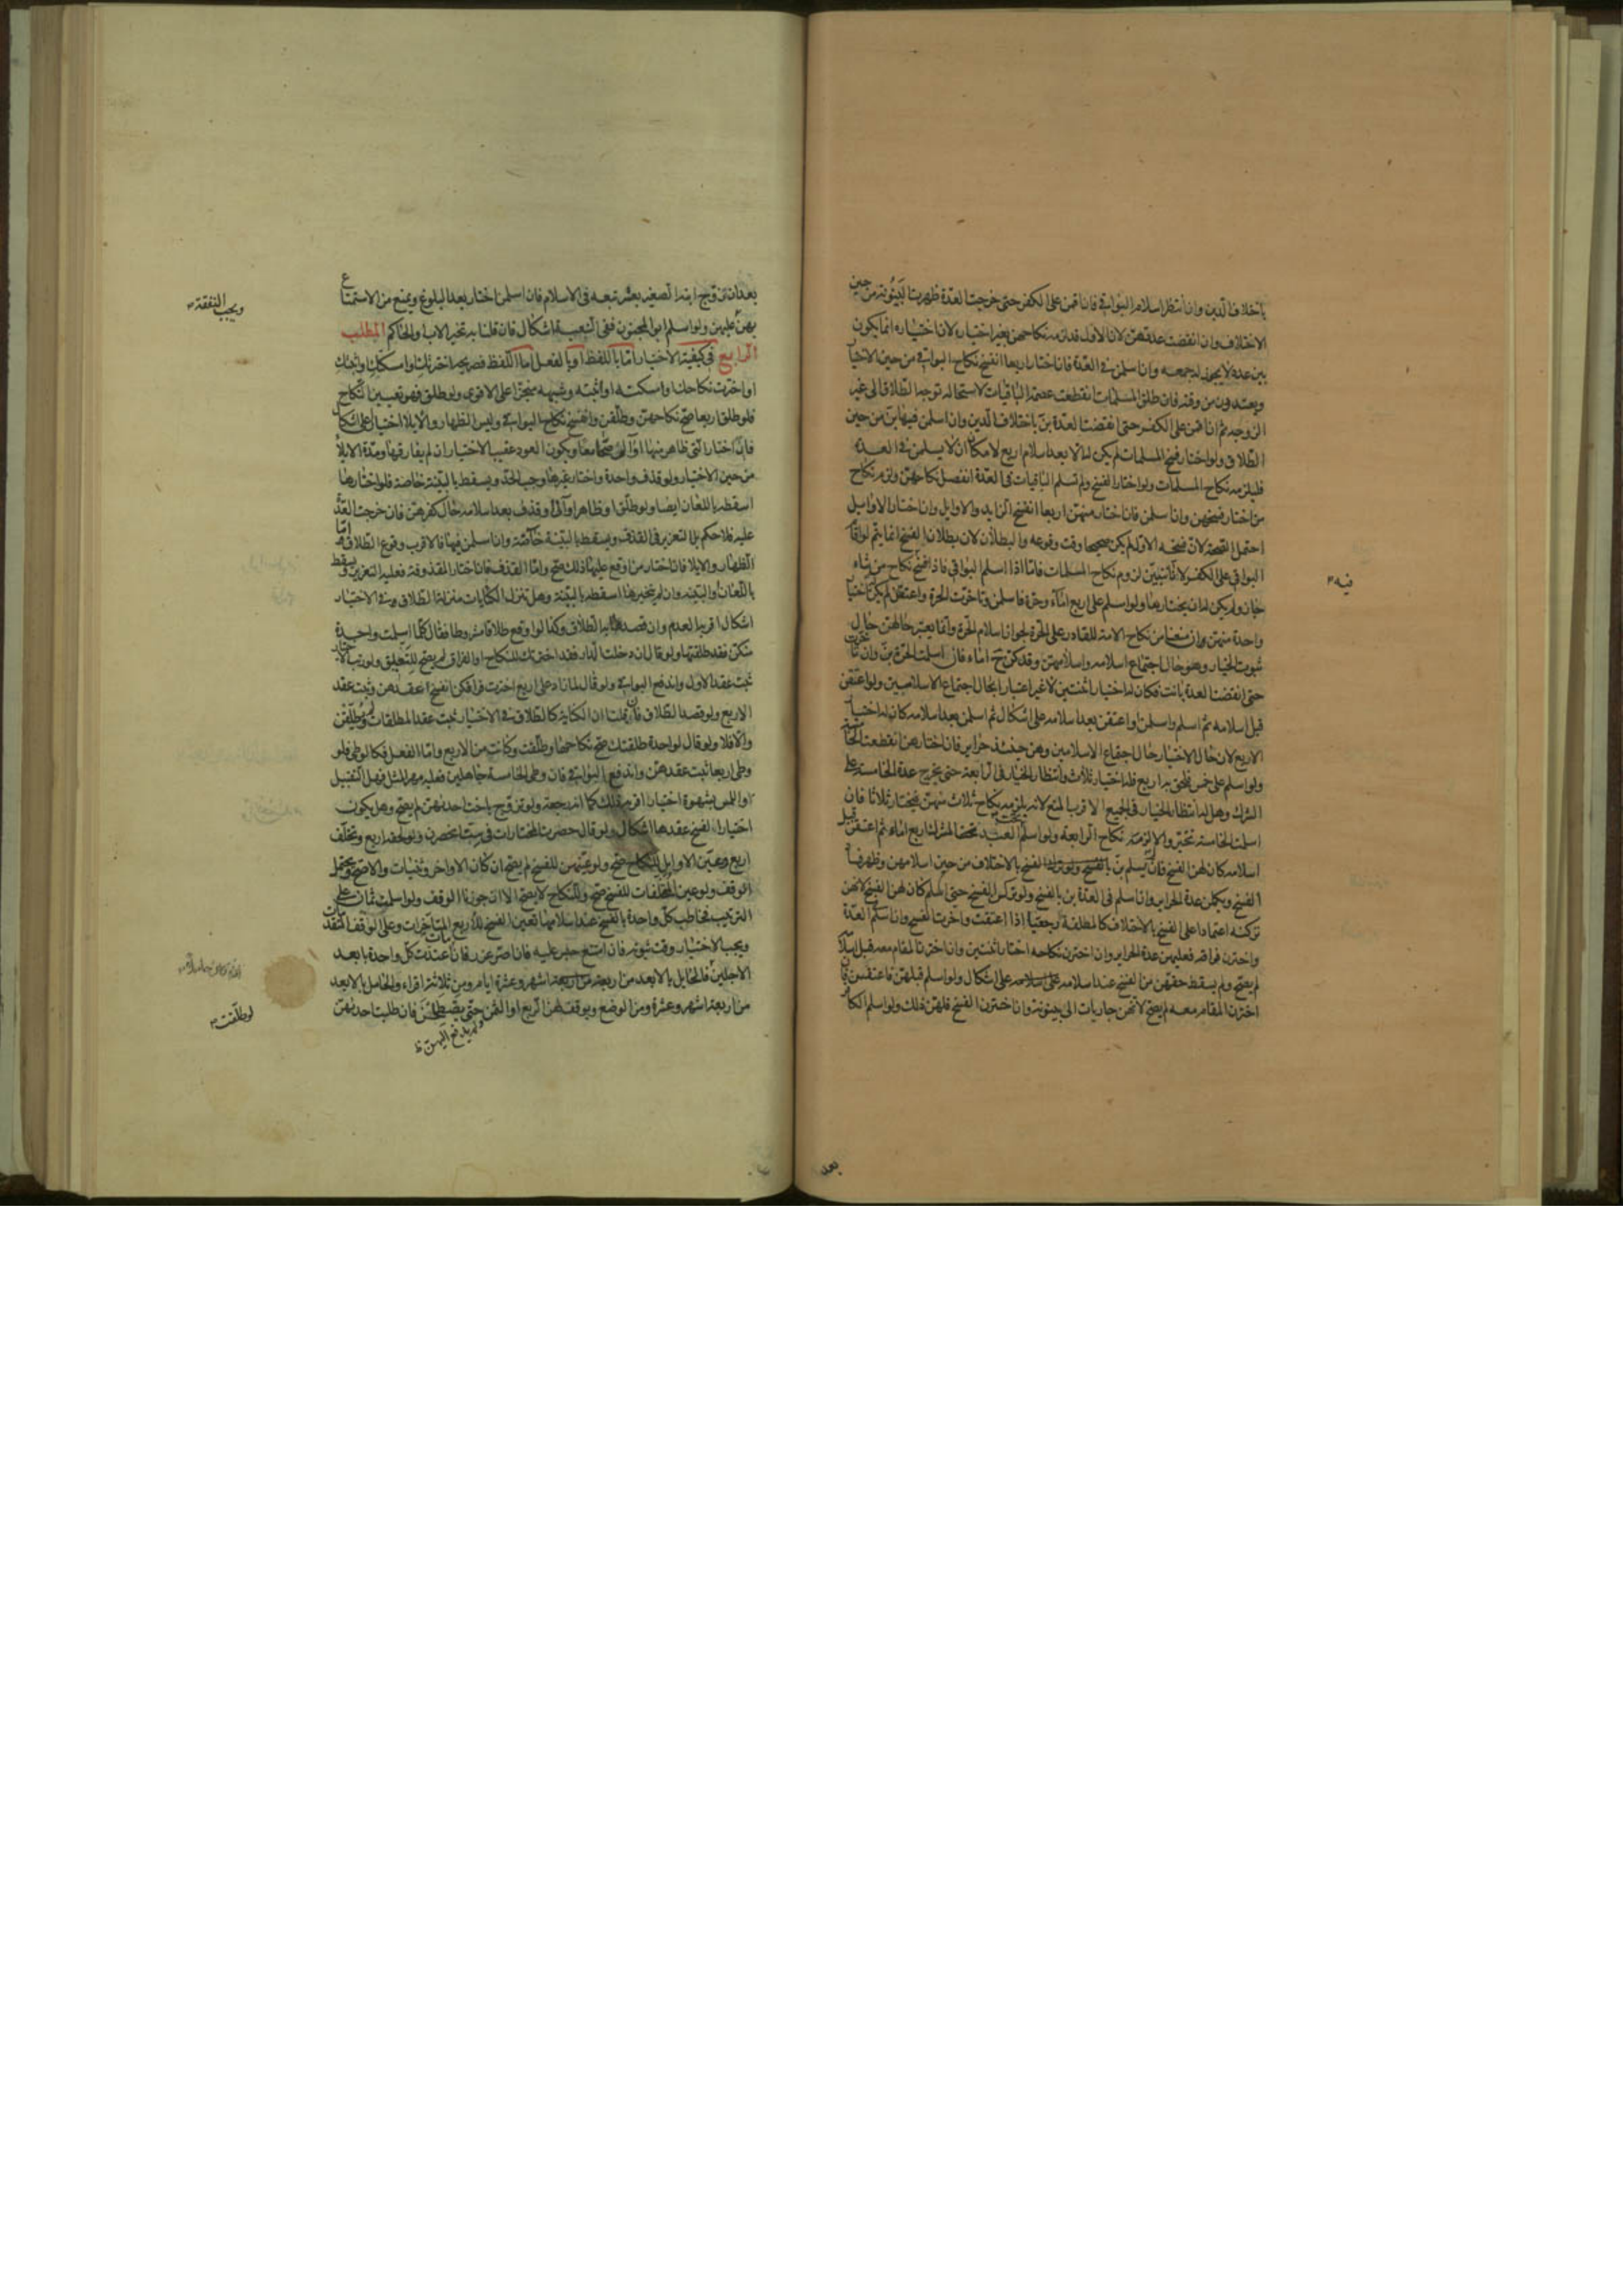 باختلاف الدين وان انتظر اسلام البواقي فان اقمن على الكفر حتى خرجت العدة ظهرت البينونة من حين
الاختلاف وان انقضت عدتهن لان الاول قد لزمه نكاحهن بغير اختياره لان اختياره انما يكون
بين عدة لا يجوز له جمعه وان اسلمن في العدة فان اختار اربعا انفسخ نكاح البواقي من حين الاختيار
ويعتددن من وقته فان طلق المسلمات انقطعت عصمة الباقيات لاستحالة توجه الطلاق الى غير
الزوجة ثم ان اقمن على الكفر حتى انقضت العدة بن باختلاف الدين وان اسلمن فيها بن من حين
الطلاق ولو اختار فسخ المسلمات لم يكن له الا بعد اسلام اربع لامكان ان لا يسلمن في العدة
فيلزمه نكاح المسلمات ولو اختار الفسخ ولم تسلم الباقيات في العدة انفصل نكاحهن ولزمه نكاح
من اختار فسخهن وان اسلمن فان اختار منهن اربعا انفسخ الزايد والاوايل وان اختار الاوايل
احتمل الصحة لان فسخه الاول لم يكن صحيحا وقت وقوعه والبطلان لان بطلان الفسخ انما يتم لو اقام
البواقي على الكفر لانا نتبين لزوم نكاح المسلمات فاما اذا اسلم البواقي فاذا فسخ نكاح من شاء
جاز ولم يكن له ان يختارها ولو اسلم على اربع اماء وحرة فاسلمن وتاخرت الحرة واعتقن لم يكن له اختيار
واحدة منهن وان منعنا من نكاح الامة للقادر على الحرة لجواز اسلام الحرة وانما يعتبر حالهن حال
ثبوت الخيار وهو حال اجتماع اسلامه واسلامهن وقد كن ح اماء فان اسلمت الحرة بن وان تاخرت
حتى انقضت العدة بانت فكان له اختيار اثنتين لا غير اعتبارا بحال اجتماع الاسلامين ولو اعتقن
قبل اسلامه ثم اسلم واسلمن او اعتقن بعد اسلامه على اشكال ثم اسلمن بعد اسلامه كان له اختيار
الاربع لان حال الاختيار حال اجتماع الاسلامين وهن حينئذ حراير فان اختارهن انقطعت الخامسة
ولو اسلم على خمس فلحق به اربع فله اختيار ثلاث وانتظار الخيار في الرابعة حتى يخرج عدة الخامسة على
الشرك وهل له انتظار الخيار في الجميع الاقرب المنع لانه يلزمه نكاح ثلاث منهن فيختار ثلاثا فان
اسلمت الخامسة تخير والا لزمه نكاح الرابعة ولو اسلم العبد تحته المشرك اربع اماء ثم اعتقن قبل
اسلامه كان لهن الفسخ فان لم يسلم بن بالفسخ بالاختلاف من حين اسلامهن وظهر فساد
الفسخ ويكملن عدة الحراير وان اسلم في العدة بن بالفسخ ولو تركن الفسخ حتى اسلم كان لهن الفسخ لانهن
تركنه اعتمادا على الفسخ بالاختلاف كالمطلقة رجعيا اذا اعتقت واخرت الفسخ وان اسلم في العدة
واخترن فراقه فعليهن عدة الحراير وان اخترن نكاحه اختار اثنتين وان اخترن المقام معه قبل اسلامه
لم يصح ولم يسقط حقهن من الفسخ عند اسلامه على اشكال ولو اسلم قبلهن فاعتقن فان
اخترن المقام معه لم يصح لانهن جاريات الى بينونة وان اخترن الفسخ فلهن ذلك ولو اسلم الكافر
فيه
بعد
بعد ان زوج ابنه الصغير بعشر تبعه في الاسلام فان اسلمن اختار بعد البلوغ ويمنع من الاستمتاع
بهن عليهن ولو اسلم ابو المجنون ففي التبعية اشكال فان قلنا به تخير الاب او الحاكم المطلب
الرابع في كيفية الاختيار اما باللفظ او بالفعل اما اللفظ فصريحه اخترتك وامسكتك واثبتك
او اخترت نكاحك او امسكته او اثبته وشبهه منجزا على الاقوى ولو طلق فهو تعيين النكاح
فلو طلق اربعا صح نكاحهن وطلقن وانفسخ نكاح البواقي وليس الظهار والايلا اختيارا على اشكال
فان اختار التي ظاهر منها او آلى صحا معا ويكون العود عقيب الاختيار ان لم يفارقها ومدة الايلاء
من حين الاختيار ولو قذف واحدة واختار غيرها وجب الحد ويسقط بالبينة خاصة فلو اختارها
اسقطه باللعان ايضا ولو طلق او ظاهر او آلى او قذف بعد اسلامه حال كفرهن فان خرجت العدة
عليه فلا حكم الا التعزير في القذف ويسقط بالبينة خاصة وان اسلمن فيها فالاقرب وقوع الطلاق واما
الظهار والايلا فان اختار من اوقع عليها ذلك صح واما القذف فان اختار المقذوفة فعليه التعزير ويسقط
باللعان او البينة وان لم يخترها اسقطه بالبينة وهل تنزل الكنايات منزلة الطلاق في الاختيار
اشكال اقربه العدم وان قصد به الطلاق وكذا لو اوقع طلاقا مشروطا فقال كلما اسلمت واحدة
منكن فقد طلقتها ولو قال ان دخلت الدار فقد اخترتك للنكاح او الفراق لم يصح للتعليق ولو رتب الاختيار
ثبت عقد الاول واندفع البواقي ولو قال لما زاد على اربع اخترت فراقكن انفسخ عقدهن وثبت عقد
الاربع ولو قصد الطلاق فان قلنا ان الكناية كالطلاق في الاختيار ثبت عقد المطلقات وطلقن
والا فلا ولو قال لواحدة طلقتك صح نكاحها وطلقت وكانت من الاربع واما الفعل فكالوطي فلو
وطي اربعا ثبت عقدهن واندفع البواقي فان وطي الخامسة جاهلين فعليه مهر المثل وهل التقبيل
او اللمس بشهوة اختيار اقربه ذلك كما انه رجعة ولو تزوج باخت احديهن لم يصح وهل يكون
اختيارا لفسخ عقدها اشكال ولو قال حصرت المختارات في ست انحصرن ولو لحقه اربع وتخلف
اربع وعين الاوايل للنكاح صح ولو عينهن للفسخ لم يصح ان كان الاواخر وثنيات والا صح ويحتمل
الوقف ولو عين المتخلفات للفسخ صح وللنكاح لا يصح الا ان جوزنا الوقف ولو اسلمت ثمان على
الترتيب فخاطب كل واحدة بالفسخ عند اسلامها تعين الفسخ للاربع المتاخرات وعلى الوقف المتقدمات
ويجب الاختيار وقت ثبوته فان امتنع حبس عليه فان اصر عزر فان مات اعتدت كل واحدة بابعد
الاجلين فالحايل بالابعد من اربعة اشهر وعشرة ايام ومن ثلاثة اقراء والحامل بالابعد
من اربعة اشهر وعشرة ومن الوضع ويوقف لهن الربع او الثمن حتى يصطلحن فان طلبت احديهن
لم يدفع اليهن
ويجب النفقة
لو طلقت